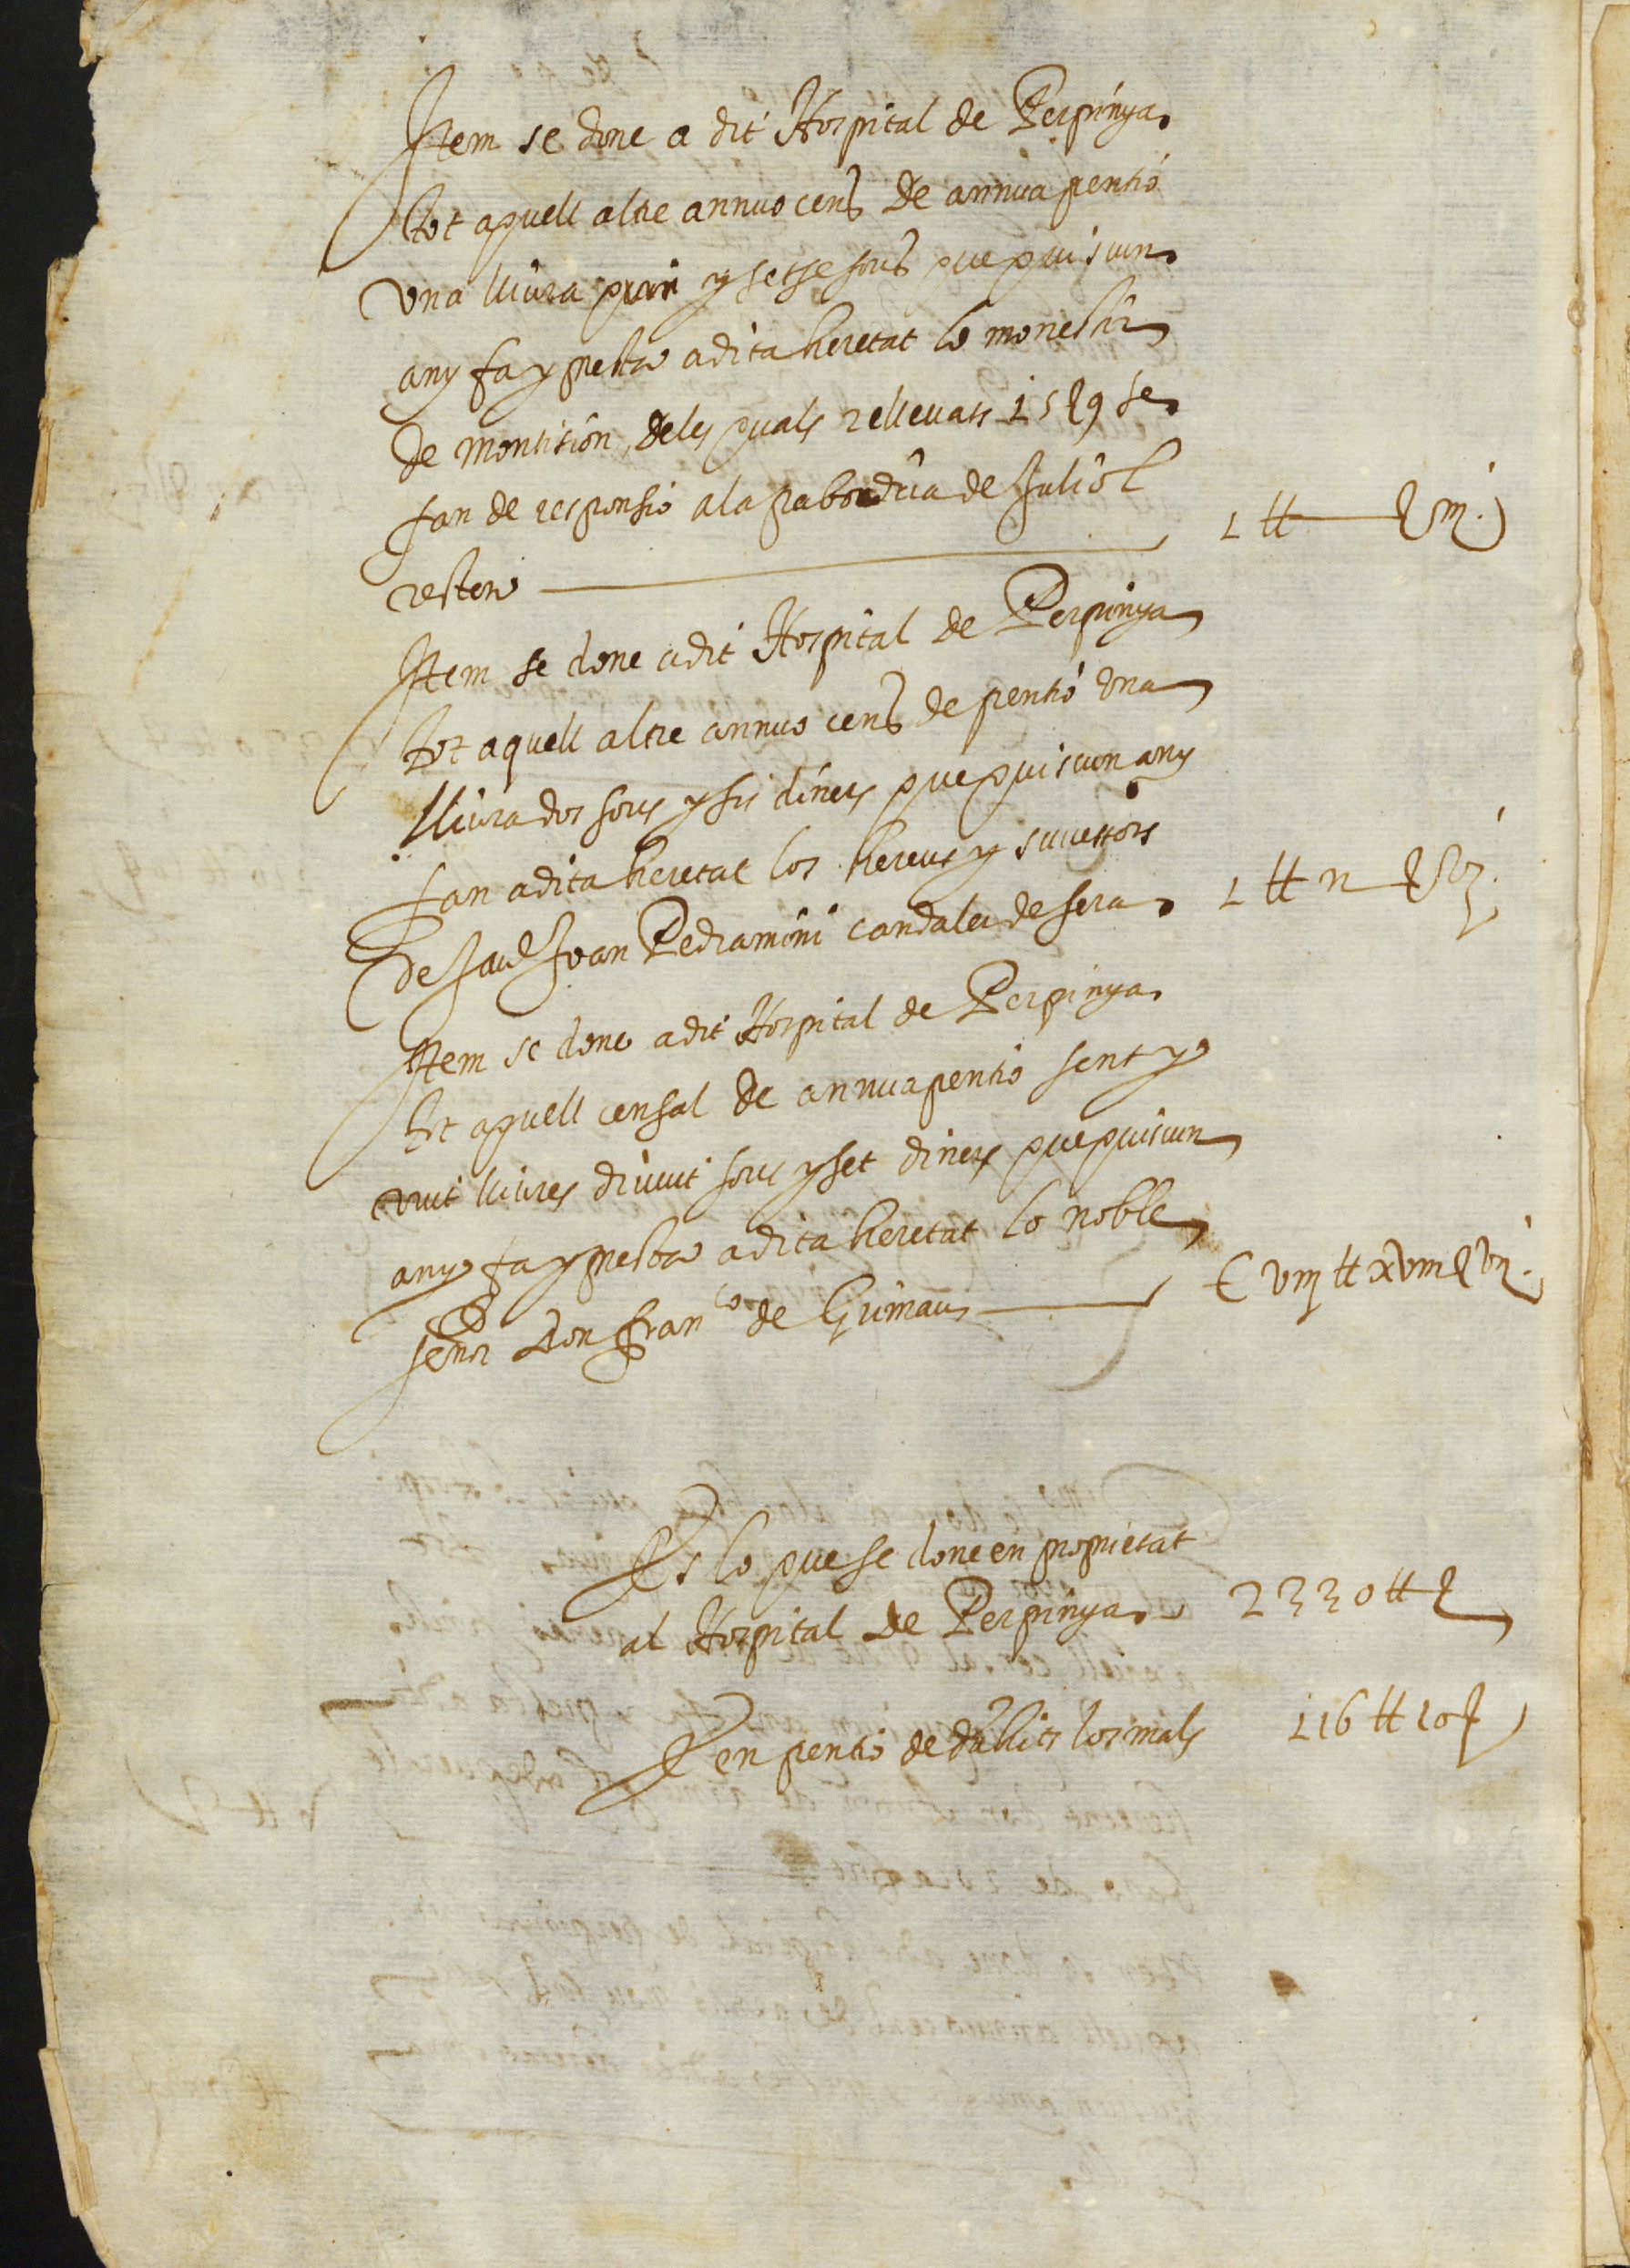 Item se done a dit Hospital de Perpinya
tot aquell altre annuo cens de annua pentio
una lliura y setse sous que quiscun
any fa y presta a dita heretat lo monestir
de montision, deles quals rellevats 15 s 9 se
fan de responsio ala pabordria de Juliol
resten 1 tt s iij
Item se done a dit Hospital de Perpinya
tot aquell altre annuo cens de pentio una
lliura dos sous y sis diners que quiscun any
fan a dita heretat los hereus y successors
de Joan Pedramini candaler de sera 1 tt ij s vj
Item se done a dit Hospital de Perpinya
tot aquell censal de annua pentio sent y
vuit lliures divuit sous y set diners que quiscun
any fa y presta a dita heretat lo noble
señor Don Franco de Grimaus C viij tt xviij s vij
Es lo que se done en proprietat
al Hospital de Perpinya 2330 tt s
E en pentio de dits llits los mals 116 tt 10 s